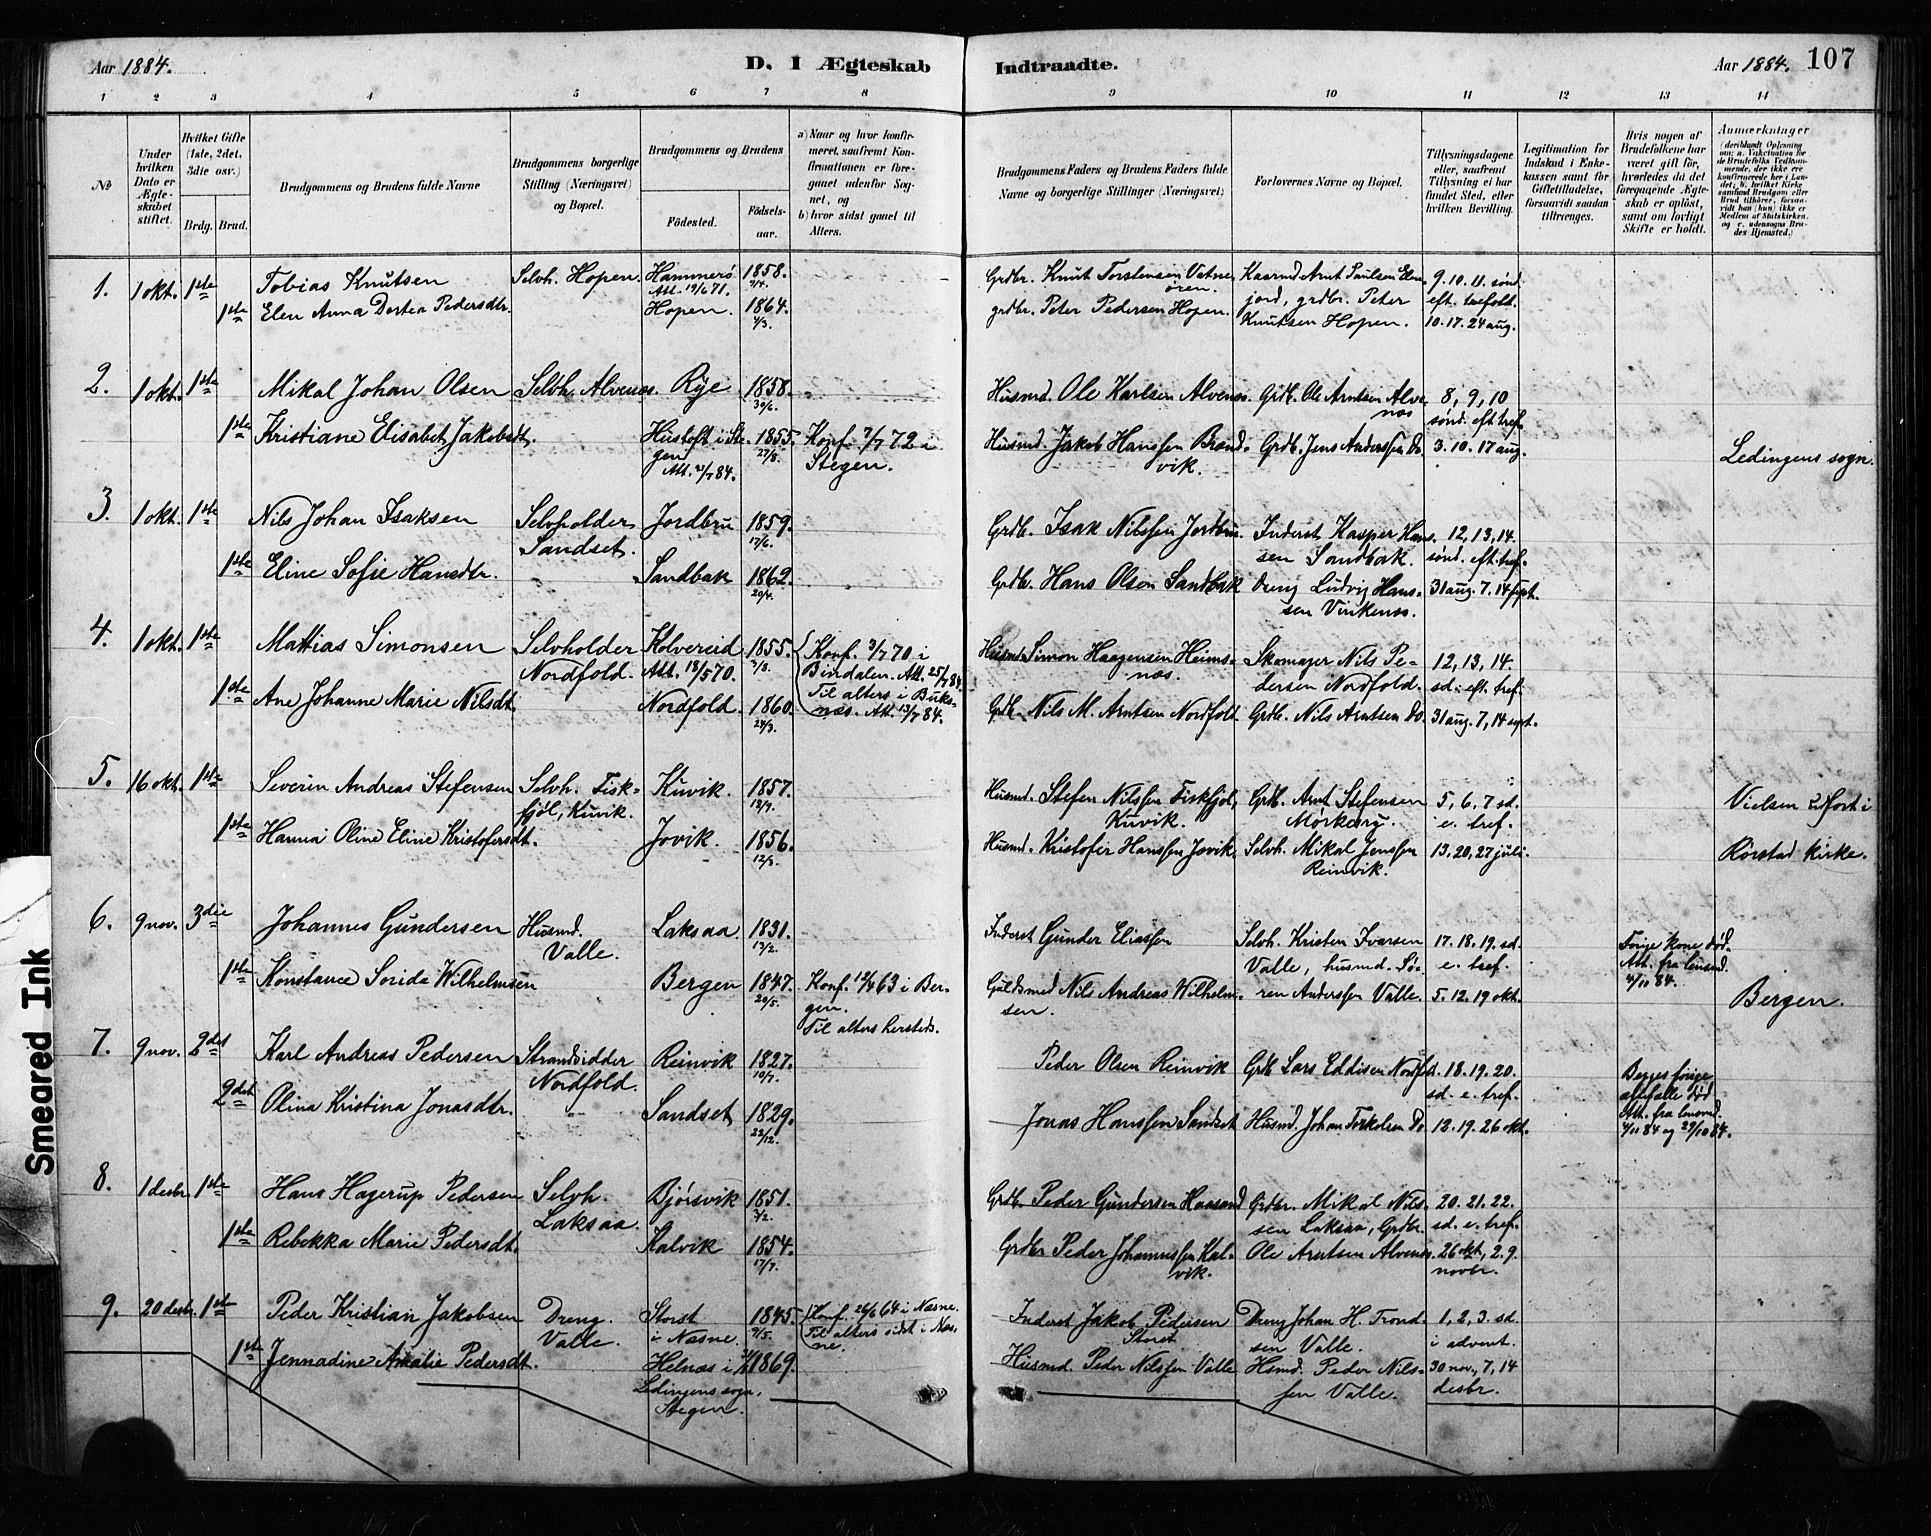 Aar 1884.
D. I Ægteskab
Indtraadte.
Aar 1884. 107
1 2 3 4 5 6 7 8
9 10 11 12 13 14
№
Under hvilken Dato er Ægteskabet stiftet.
Hvilket Gifte (1ste, 2det, 3die osv.)
Brdg. Brud.
Brudgommens og Brudens fulde Navne
Brudgommens borgerlige Stilling (Næringsvei) og Bopæl.
Brudgommens og Brudens
Fødested.
Fødselsaar.
a) Naar og hvor konfirmeret, saafremt Konfirmationen er foregaaet udenfor Sognet, og
b) hvor sidst gaaet til Alters.
Brudgommens Faders og Brudens Faders fulde Navne og borgerlige Stillinger (Næringsvei)
Forlovernes Navne og Bopæl.
Tillysningsdagene eller, saafremt Tillysning ei har fundet Sted, efter hvilken Bevilling.
Legitimation for Indskud i Enkekassen samt for Giftetilladelse, forsaavidt saadan tiltrænges.
Hvis nogen af Brudefolkene har været gift før, hvorledes da det foregaaende Ægteskab er opløst, samt om lovligt Skifte er holdt.
Anmærkninger
1. 1 okt. 1ste Tobias Knutsen Selvh. Hopen. Hammerø 1858.
Att. 19/6 71. 9/4.
1ste Elen Anna Dortea Pedersdtr. Hopen. 1864.
4/3.
Grdbr. Knut Torstensen Vatne Kaarmd Arnt Paulsen Elen- 9. 10. 11. sønd.
øren. jord, grdbr. Peter eft. trefold.
grdbr. Peter Pedersen Hopen. Knutsen Hopen. 10. 17. 24 aug.
2. 1 okt. 1ste Mikal Johan Olsen Selvh. Alvenes. Rye 1858.
30/6.
1ste Kristiane Elisabet Jakobsdt. Hustoft i Ste- 1855. Konf. 7/7 72 i
gen 27/8. Stegen.
Att. 21/7 84.
Husmd. Ole Karlsen Alvenæs. Grdb. Ole Arntsen Alve- 8, 9, 10
næs sønd. eft tref.
Husmd. Jakob Hanssen Brænd- Grdb. Jens Anderssen Do. 3. 10. 17 aug.
vik. Lødingens sogn.
3. 1 okt. 1ste Nils Johan Isaksen Selvholder Jordbru 1859.
Sandset. 17/6.
1ste Eline Sofie Hansdtr. Sandbak 1862.
20/4.
Grdb. Isak Nilssen Jordbru. Inderst Kasper Han- 12, 13, 14.
sen Sandbak. sønd. eft. tref.
Grdb. Hans Olsen Sandbak Dreng Ludvig Hans- 31 aug. 7, 14 sept.
sen Vinkenæs.
4. 1 okt. 1ste Mattias Simonsen Selvholder Kolvereid 1855. Konf. 3/7 70 i
Nordfold. Att. 18/5 70. Bindalen. Att. 25/7 84.
Til alters i Buks-
1ste Ane Johanne Marie Nilsdt. Nordfold. 1860. næs. Att. 13/7 84.
24/3.
Husmd. Simon Haagensen Heims- Skomager Nils Pe- 12, 13, 14.
næs. dersen Nordfold. sd. eft. tref.
Grdb. Nils M. Arntsen Nordfold. Grdb. Nils Arntsen Do. 31 aug. 7, 14 sept.
5. 16 okt. 1ste Severin Andreas Stefensen Selvh. Fisk- Kuvik. 1857.
fjøl, Kuvik. 18/9.
1ste Hanna Oline Eline Kristofersdt. Jovik. 1856.
12/3.
Husmd. Stefen Nilssen Fiskfjøl, Grdb. Arnt Stefensen 5, 6, 7 sd.
Kuvik. Mørkery. e. tref.
Husmd. Kristofer Hanssen Jovik. Selvh. Mikal Jenssen 13, 20, 27 juli.
Reinvik.
Vielsen udført i
Rørstad kirke.
6. 9 nov. 3die Johannes Gundersen Husmd. Laksaa. 1831.
Valle. 13/2.
1ste Konstance Sorida Wilhelmsen Bergen 1847. Konf. 12/4 63 i Ber-
20/5. gen.
Til alters hersteds.
Inderst Gunder Eliassen Selvh. Kristen Ivarsen 17. 18. 19. sd.
Valle, husmd. Sø- e. tref.
Guldsmed Nils Andreas Wilhelm- ren Anderssen Valle. 5. 12. 19 okt.
sen.
Forige kone død.
Att. fra lensmd.
4/10 84.
Bergen.
7. 9 nov. 2det Karl Andreas Pedersen Strandsidder Reinvik 1827.
Nordfold. 10/7.
2det Olina Kristina Jonasdtr. Sandset 1829.
22/12.
Peder Olsen Reinvik Grdb Lars Eddisen Nordfold. 18. 19. 20.
sd. e. tref.
Jonas Hanssen Sandset Husmd. Johan Torkelsen Do. 12. 19. 26 okt.
Begges forige
død
Att. fra lensmd.
4/11 84 og 29/10 84.
8. 1 desbr. 1ste Hans Hagerup Pedersen Selvh. Bjørsvik 1851.
Laksaa. 3/2.
1ste Rebekka Marie Pedersdt. Kalvik 1854.
17/7.
Grdb. Peder Gundersen Haasand Grdbr. Mikal Nils- 20. 21. 22.
sen Laksaa, Grdbr. sd. e. tref.
Grdbr Peder Johannessen Kal- Ole Arntsen Alvenæs. 26 okt, 2. 9.
vik. novbr.
9. 20 desbr. 1ste Peder Kristian Jakobsen Dreng. Storst 1845. Konf. 26/6 64 i Næsne.
Valle. i Næsne. 9/5. Til alters sidst i Næs-
ne.
1ste Jennadine Amalie Pedersdt. Helnæs i 1869.
Lødingens sogn,
Stegen.
Inderst Jakob Pedersen Dreng Johan H. Trond- 1, 2, 3. sd.
Storst sen Valle. i advent.
Husmd. Peder Nilssen Valle Hsmd. Peder Nils- 30 nov., 7, 14
sen Valle. desbr.
Smeared Ink